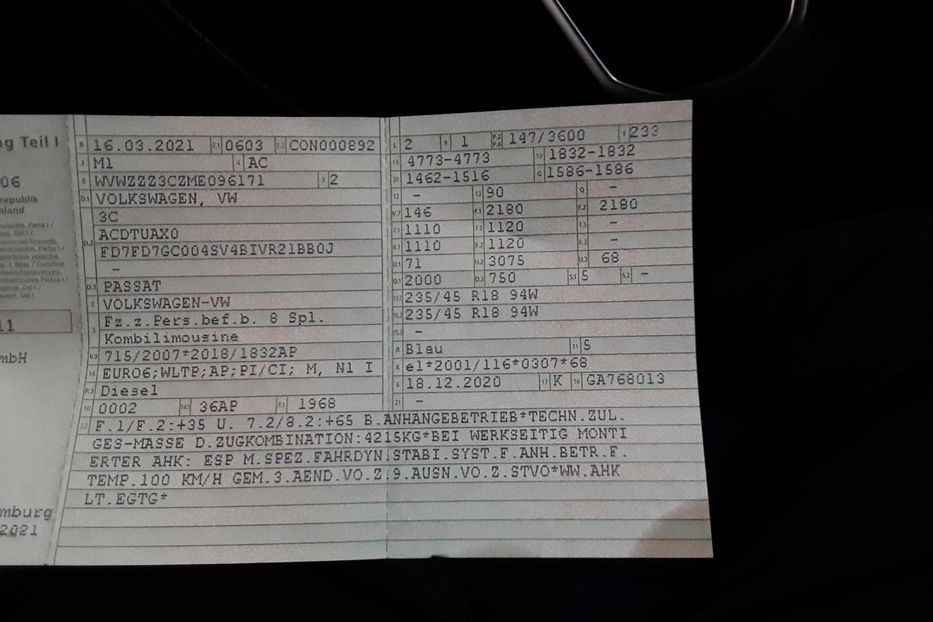 ng Teil I
06
republik
hland
11
mbH
mburg
2021
B 16.03.2021 2.1 0603 2.2 CON000892
J M1 4 AC
E WVWZZZ3CZME096171 3 2
D.1 VOLKSWAGEN, VW
3C
D.2 ACDTUAX0
FD7FD7GC004SV4BIVR21BB0J
–
D.3 PASSAT
2 VOLKSWAGEN-VW
5 Fz.z.Pers.bef.b. 8 Spl.
Kombilimousine
V.9 715/2007*2018/1832AP
14 EURO6;WLTP;AP;PI/CI; M, N1 I
P.3 Diesel
10 0002 14.1 36AP P.1 1968
L 2 9 1 P.2 P.4 147/3600 T 233
18 4773-4773 19 1832-1832
20 1462-1516 G 1586-1586
12 – 13 90 Q –
V.7 146 F.1 2180 F.2 2180
7.1 1110 7.2 1120 7.3 –
8.1 1110 8.2 1120 8.3 –
U.1 71 U.2 3075 U.3 68
O.1 2000 O.2 750 S.1 5 S.2 –
15.1 235/45 R18 94W
15.2 235/45 R18 94W
15.3 –
R Blau 11 5
K e1*2001/116*0307*68
6 18.12.2020 17 K 16 GA768013
21 –
22 F.1/F.2:+35 U. 7.2/8.2:+65 B.ANHANGEBETRIEB*TECHN.ZUL.
GES-MASSE D.ZUGKOMBINATION:4215KG*BEI WERKSEITIG MONTI
ERTER AHK: ESP M.SPEZ.FAHRDYN.STABI.SYST.F.ANH.BETR.F.
TEMP.100 KM/H GEM.3.AEND.VO.Z.9.AUSN.VO.Z.STVO*WW.AHK
LT.EGTG*